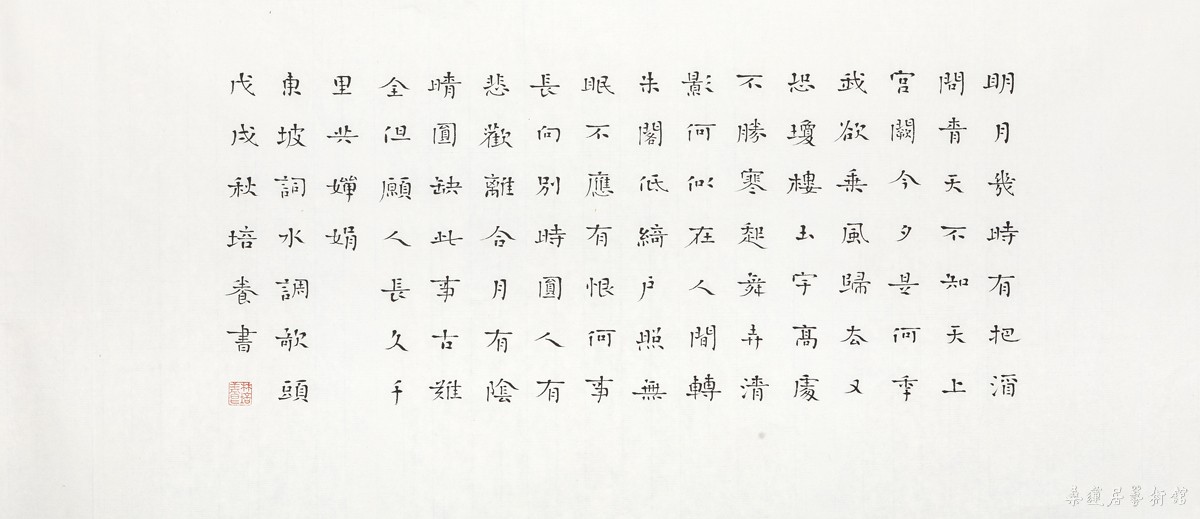 明月幾時有把酒
問青天不知天上
宮闕今夕是何年
我欲乘風歸去又
恐瓊樓玉宇高處
不勝寒起舞弄清
影何似在人間轉
朱閣低綺户照無
眠不應有恨何事
長向別時圓人有
悲歡離合月有陰
晴圓缺此事古難
全但願人長久千
里共嬋娟
東坡詞水調歌頭
戊戌秋培養書
桑蓮居藝術館